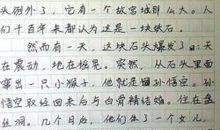 头例外了，它有一个故宫城那么大。人
们千百年来都认为这是一块块石。
然而有一天，这块石头爆炸了，天
在震动，地在摇晃。突然，从石头里面
窜出一只小猴子，他就是猴孙悟空。孙
悟空取经回来后与白骨精结婚，住在盘
丝洞，几个月后，他们生了一个女儿